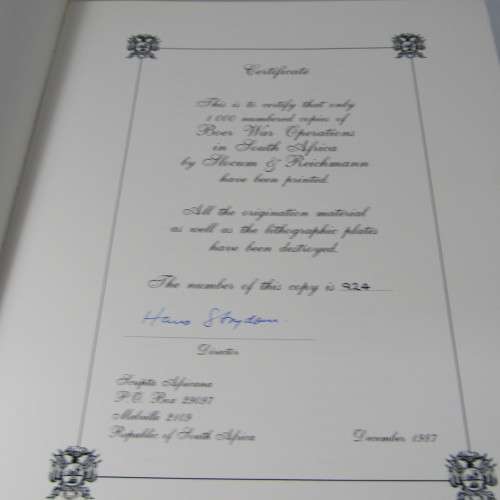 Certificate
This is to certify that only
1 000 numbered copies of
Boer War Operations
in South Africa
by Slocum & Reichmann
have been printed.
All the origination material
as well as the lithographic plates
have been destroyed.
The number of this copy is 924
Hans Strydom
Director
Scripta Africana
P.O. Box 29097
Melville 2109
Republic of South Africa
December 1987